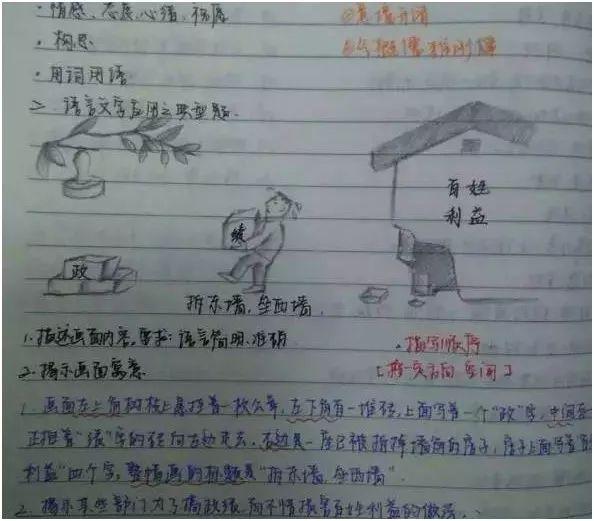 ·情感、态度、心绪、
·构思
·用词用语
二 语言文字应用之典型题.
百姓
利益
绩
政
拆东墙,垒西墙.
1.描述画面内容,要求:语言简明、准确
·描写顺序
2.揭示画面寓意
[按一定方向 空间]
1. 画面左上角的树枝上悬挂着一枚公章,左下角有一堆砖,上面写着一个"政"字,中间
正抱着"绩"字的砖向左边走去,右边是一座已被拆掉墙面的房子,房子上面写着
利益"四个字,整幅画的标题是"拆东墙,垒西墙".
2. 揭示某些部门为了搞政绩,而不惜损害百姓利益的做法.